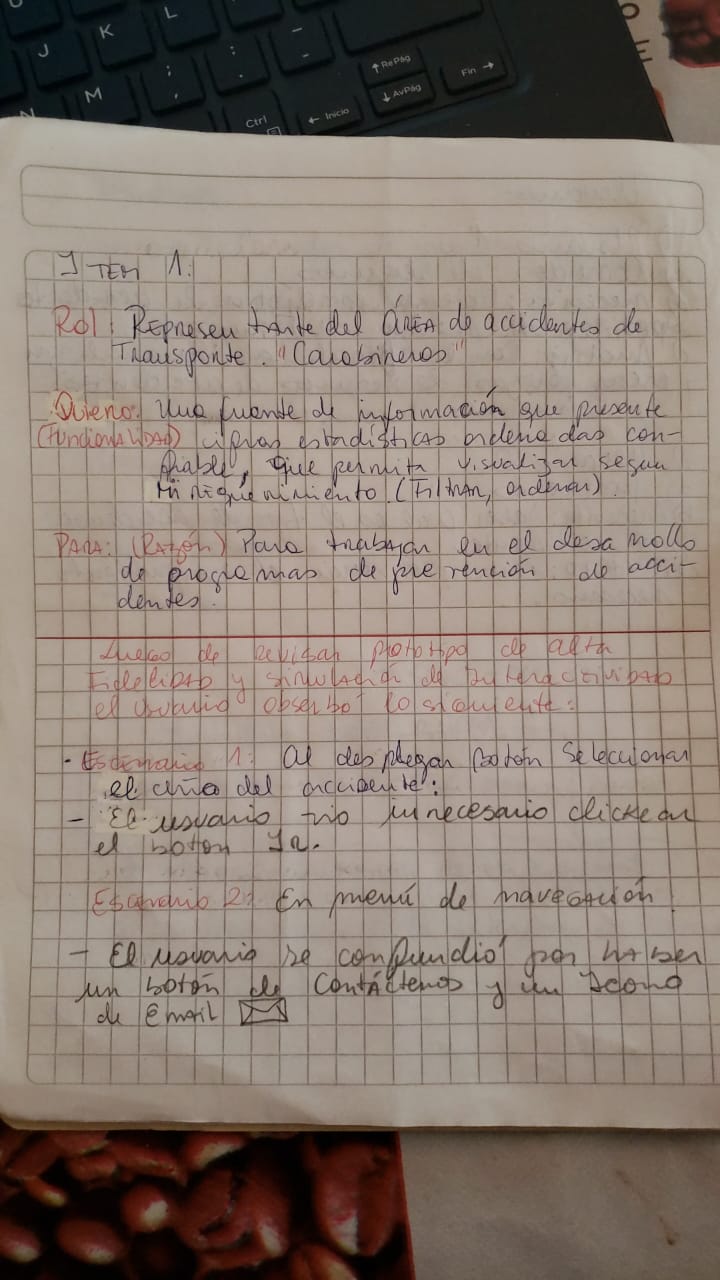 J
K
L
M
N
:
;
.
,
-
_
↑ RePág
↓ AvPág
Fin →
Ctrl
← Inicio
O
E
ITEM 1:
Rol: Representante del ÁREA de accidentes de
Transporte. "Carabineros"
Quiero: Una fuente de información que presente
(Funcionalidad) cifras estadísticas ordenadas con-
fiable, que permita visualizar segun
Mi requerimiento. (Filtrar, ordenar).
PARA: (Razón) Para trabajar en el desarrollo
de programas de prevención de acci-
dentes.
Luego de revisar prototipo de alta
Fidelidad y simulación de Interactividad
el usuario observó lo siguiente:
• Escenario 1: Al desplegar botón Seleccionar
el año del accidente:
- El usuario vio innecesario clickear
el boton Ir.
Escenario 2: En menú de navegación
- El usuario se confundió por haber
un botón de Contáctenos y un Icono
de Email